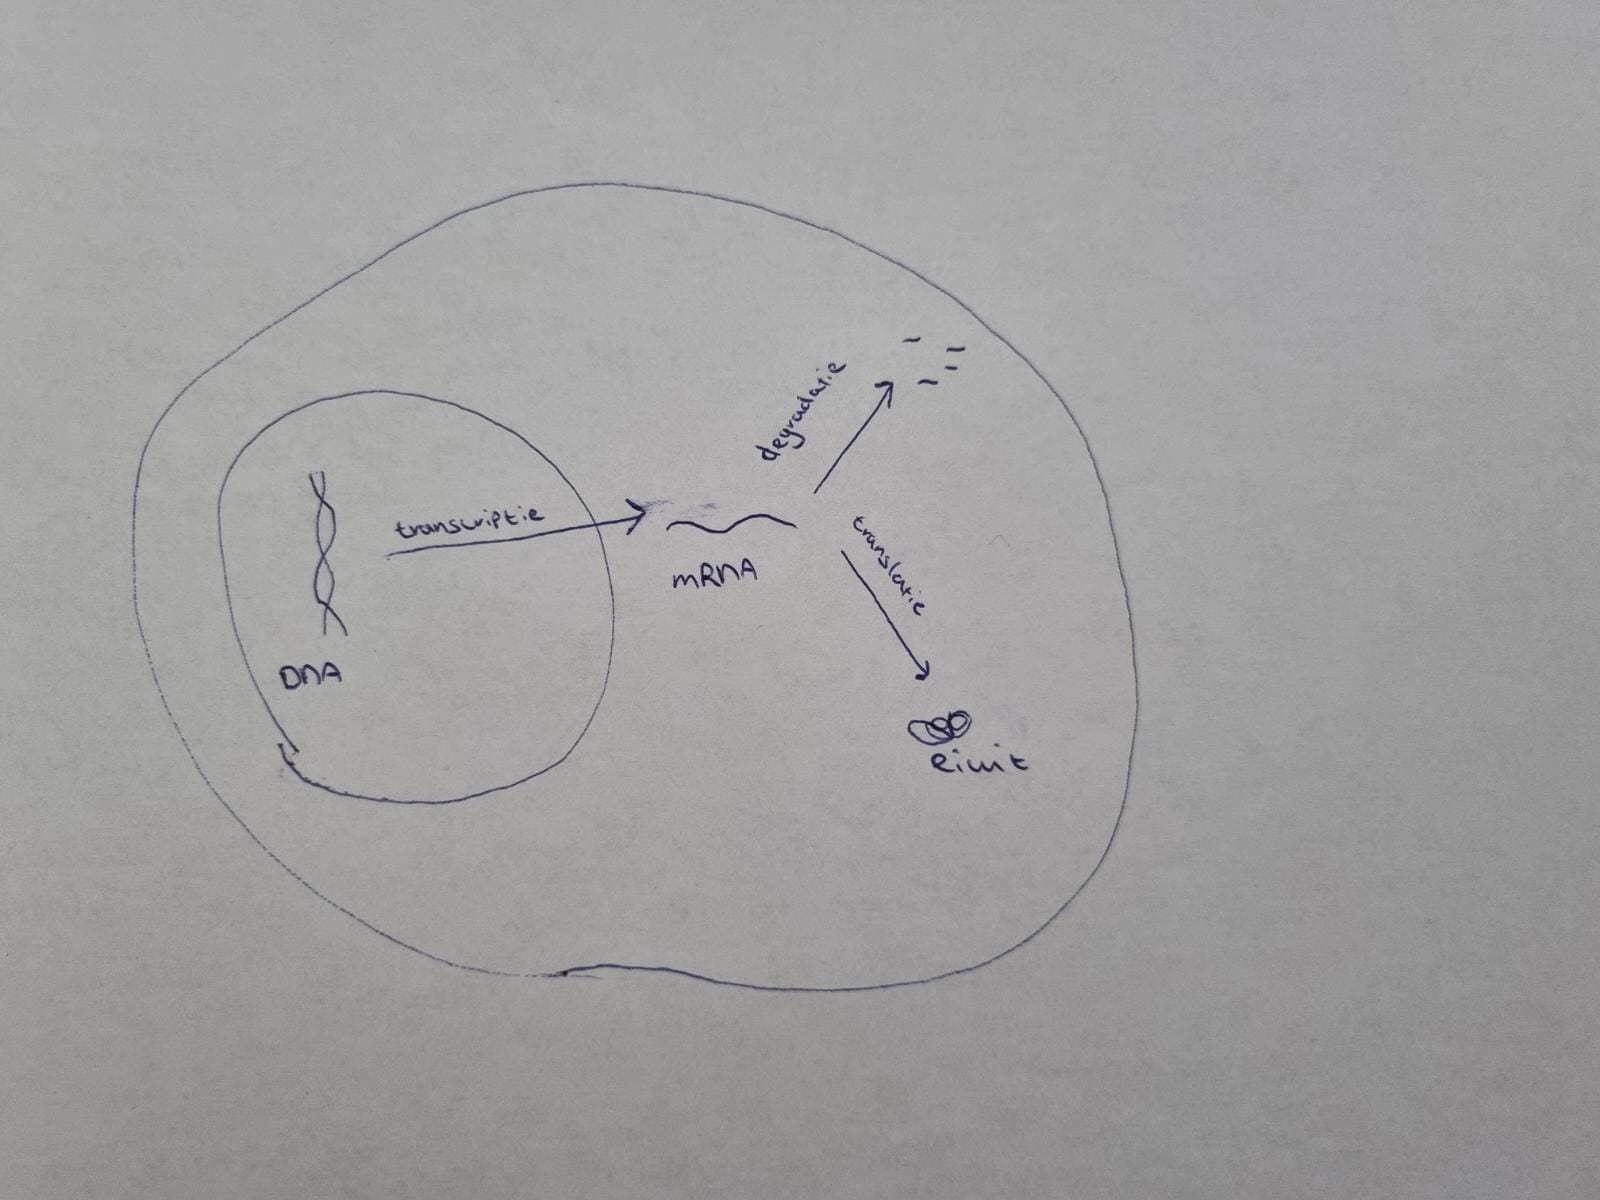 transcriptie
DNA
mRNA
degradatie
translatie
eiwit